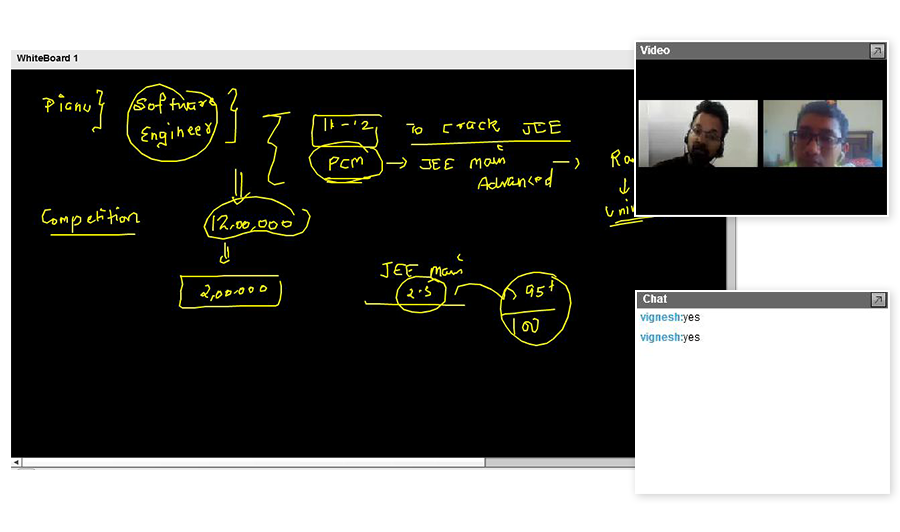 WhiteBoard 1
Piano
Software
Engineer
11-12
PCM
To Crack JEE
JEE Main
Advanced
Competition
12,00,000
2,00,000
JEE Main
2.5
95+
100
Video
Chat
vignesh:yes
vignesh:yes